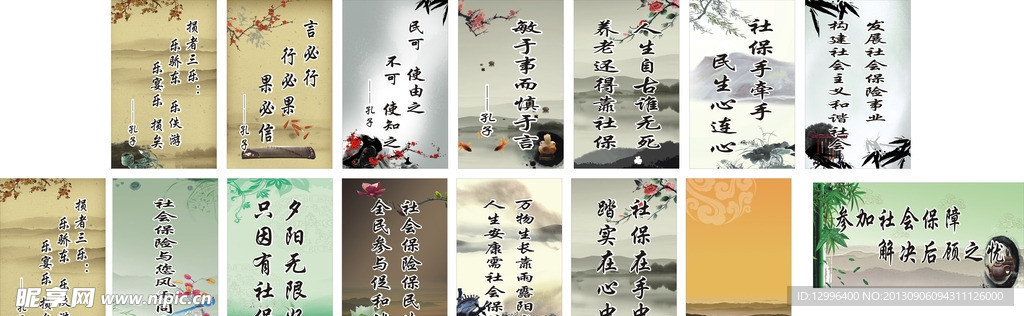 损者三乐：
乐骄东 乐佚游
乐宴乐 损矣
——孔子
言必行
行必果
果必信
——孔子
民可 使由之
不可 使知之
——孔子
敏于事而慎于言
——孔子
人生自古谁无死
养老还得靠社保
社保手牵手
民生心连心
发展社会保险事业
构建社会主义和谐社会
损者三乐：
乐骄东 乐佚
乐宴乐 损
——孔
社会保险与您风
夕阳无限
只因有社保
社会保险保民
全民参与促和
万物生长靠雨露阳
人生安康需社会保
社保在手中
踏实在心中
参加社会保障
解决后顾之忧
昵享网 www.nipic.cn
ID:12996400 NO:20130906094311126000